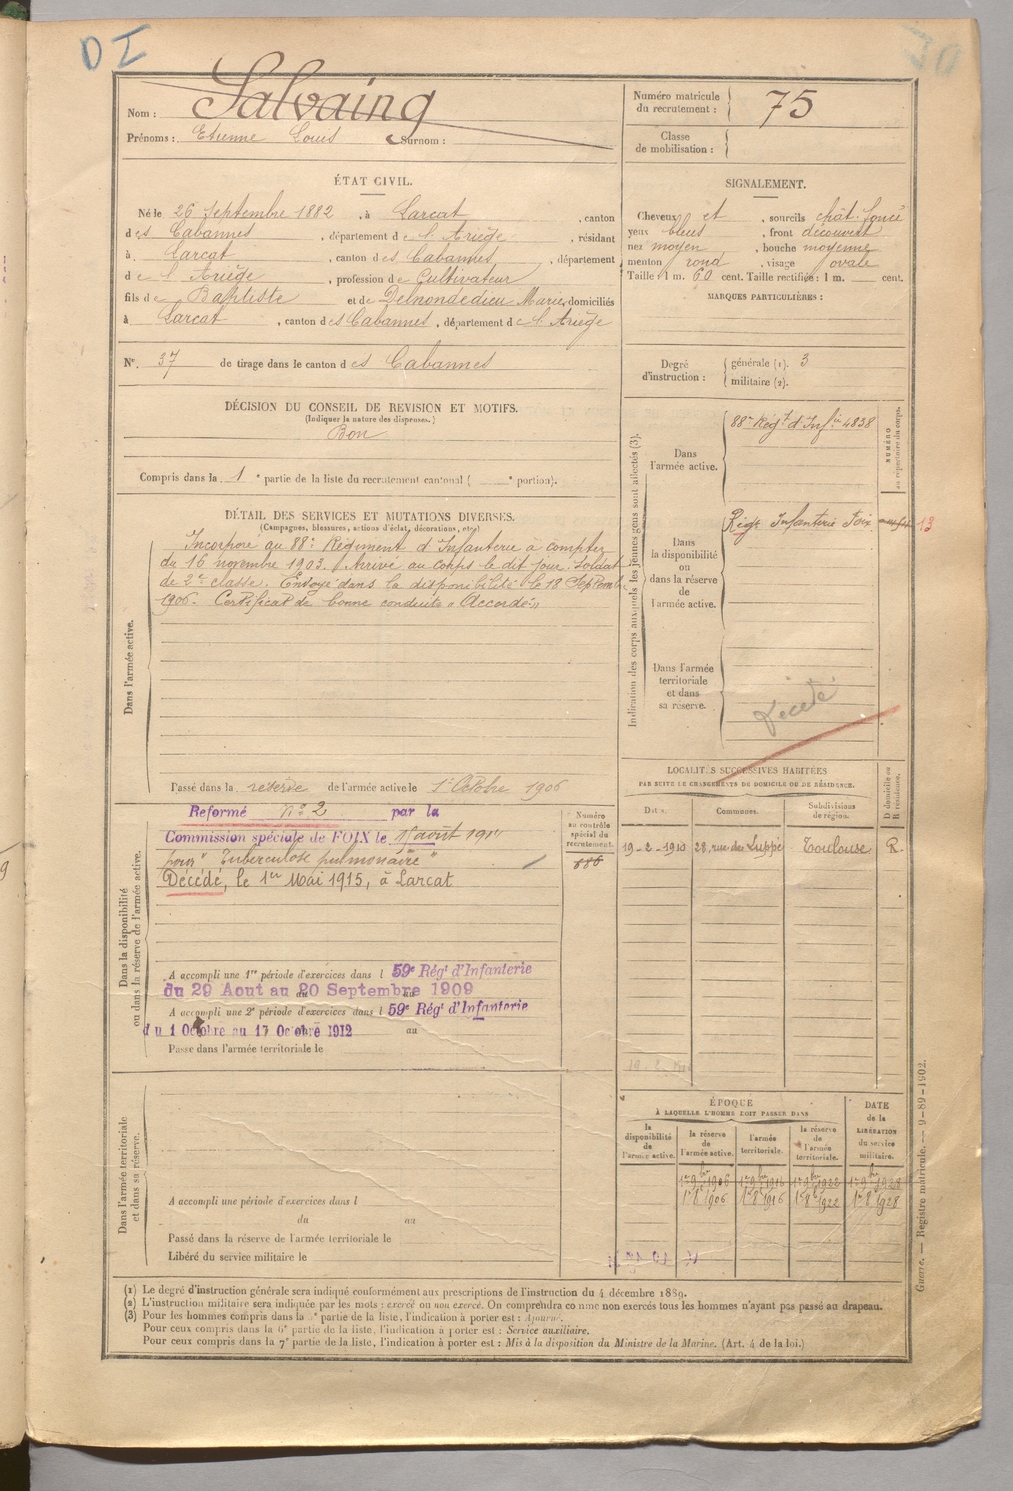 DI
Nom : Salvaing
Prénoms : Etienne Louis Surnom :
Numéro matricule
du recrutement : 75
Classe
de mobilisation :
ÉTAT CIVIL.
Né le 26 Septembre 1882, à Larcat, canton
des Cabannes, département de l'Ariège, résidant
à Larcat, canton des Cabannes, département
de l'Ariège, profession de Cultivateur
fils de Baptiste et de Delnondedieu Marie, domiciliés
à Larcat, canton des Cabannes, département de l'Ariège
N° 37 de tirage dans le canton des Cabannes
SIGNALEMENT.
Cheveux et, sourcils chât. foncé
yeux bleus, front découvert
nez moyen, bouche moyenne
menton rond, visage ovale
Taille : 1 m. 60 cent. Taille rectifiée : 1 m. cent.
MARQUES PARTICULIÈRES :
Degré
d'instruction :
générale (1). 3
militaire (2).
DÉCISION DU CONSEIL DE REVISION ET MOTIFS.
(Indiquer la nature des dispenses.)
Bon
Compris dans la 1e partie de la liste du recrutement cantonal ( e portion).
DÉTAIL DES SERVICES ET MUTATIONS DIVERSES.
(Campagnes, blessures, actions d'éclat, décorations, etc.)
Dans l'armée active.
Incorporé au 88e Régiment d'Infanterie à compter
du 16 novembre 1903. Arrivé au corps le dit jour. Soldat
de 2e classe. Envoyé dans la disponibilité le 18 Septembre
1906. Certificat de bonne conduite "Accordé"
Passé dans la réserve de l'armée active le 1er Octobre 1906
Indication des corps auxquels les jeunes gens sont affectés (3).
NUMÉRO
au répertoire du corps.
Dans
l'armée active.
88e Régt d'Infie 4838
Dans
la disponibilité
ou
dans la réserve
de
l'armée active.
Régt Infanterie Foix 13
Dans l'armée
territoriale
et dans
sa réserve.
Décédé
Dans la disponibilité
ou dans la réserve de l'armée active.
Réformé n° 2 par la
Commission spéciale de FOIX le août
pour "Tuberculose pulmonaire"
Décédé, le 1er Mai 1915, à Larcat
Numéro
au contrôle
spécial du
recrutement.
886
A accompli une 1re période d'exercices dans l 59e Régt d'Infanterie
du 29 Aout au 20 Septembre 1909
A accompli une 2e période d'exercices dans l 59e Régt d'Infanterie
du 1 Octobre au 17 Octobre 1912 au
Passé dans l'armée territoriale le
LOCALITÉS SUCCESSIVES HABITÉES
PAR SUITE DE CHANGEMENTS DE DOMICILE OU DE RÉSIDENCE.
Dates. Communes. Subdivisions
de région. D domicile ou
R résidence.
19-2-1910 28, rue de Luppé Toulouse R.
Dans l'armée territoriale
et dans sa réserve.
A accompli une période d'exercices dans l
du au
Passé dans la réserve de l'armée territoriale le
Libéré du service militaire le
ÉPOQUE
À LAQUELLE L'HOMME DOIT PASSER DANS
la
disponibilité
de
l'armée active.
la réserve
de
l'armée active.
l'armée
territoriale.
la réserve
de
l'armée
territoriale.
DATE
de la
LIBÉRATION
du service
militaire.
1er 9bre 1906 1er 9bre 1916 1er 9bre 1922 1er 9bre 1928
1er 8bre 1906 1er 8bre 1916 1er 8bre 1922 1er 8bre 1928
(1) Le degré d'instruction générale sera indiqué conformément aux prescriptions de l'instruction du 4 décembre 1889.
(2) L'instruction militaire sera indiquée par les mots : exercé ou non exercé. On comprendra comme non exercés tous les hommes n'ayant pas passé au drapeau.
(3) Pour les hommes compris dans la 5e partie de la liste, l'indication à porter est : Ajourné.
Pour ceux compris dans la 6e partie de la liste, l'indication à porter est : Service auxiliaire.
Pour ceux compris dans la 7e partie de la liste, l'indication à porter est : Mis à la disposition du Ministre de la Marine. (Art. 4 de la loi.)
Guerre. — Registre matricule. — 9-89-1902.